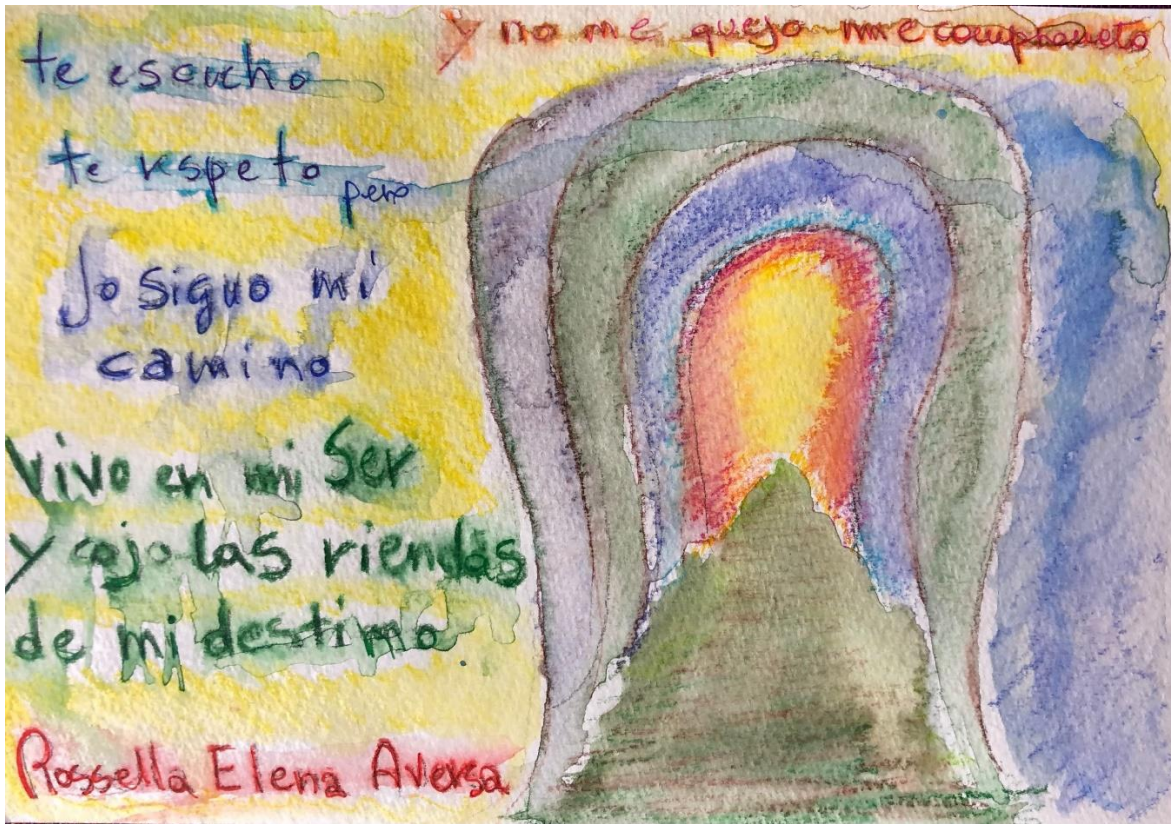 y no me quejo me comprometo
te escucho
te respeto pero
Jo siguo mi
camino
Vivo en mi Ser
y cojo las riendas
de mi destino.
Rossella Elena Aversa